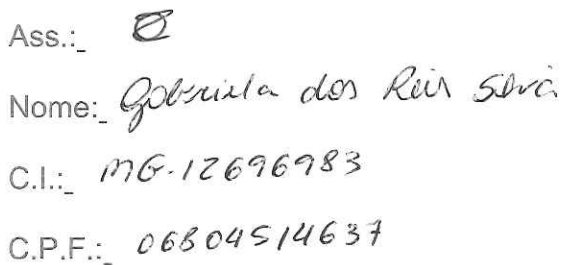 Ass.:_
Nome:_ Gabriela dos Reis Silva
C.I.:_ MG.12696983
C.P.F.:_ 06804514637